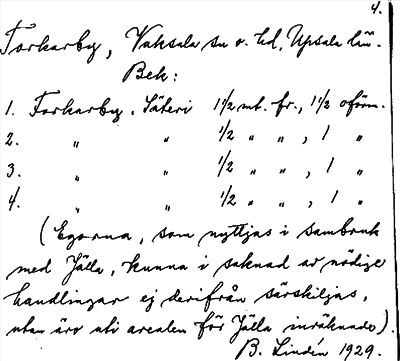 4.
Forkarby, Vaksala sn o. hd, Upsala län.
Bek:
1. Forkarby, Säteri 1 1/2 mt. fr., 1 1/2 oförm.
2. " " 1/2 " " , 1 "
3. " " 1/2 " " , 1 "
4. " " 1/2 " " , 1 "
(Egorna, som nyttjas i sambruk
med Jälla, kunna i saknad av nödige
handlingar ej derifrån särskiljas,
utan äro uti arealen för Jälla inräknade).
B. Lindén 1929.